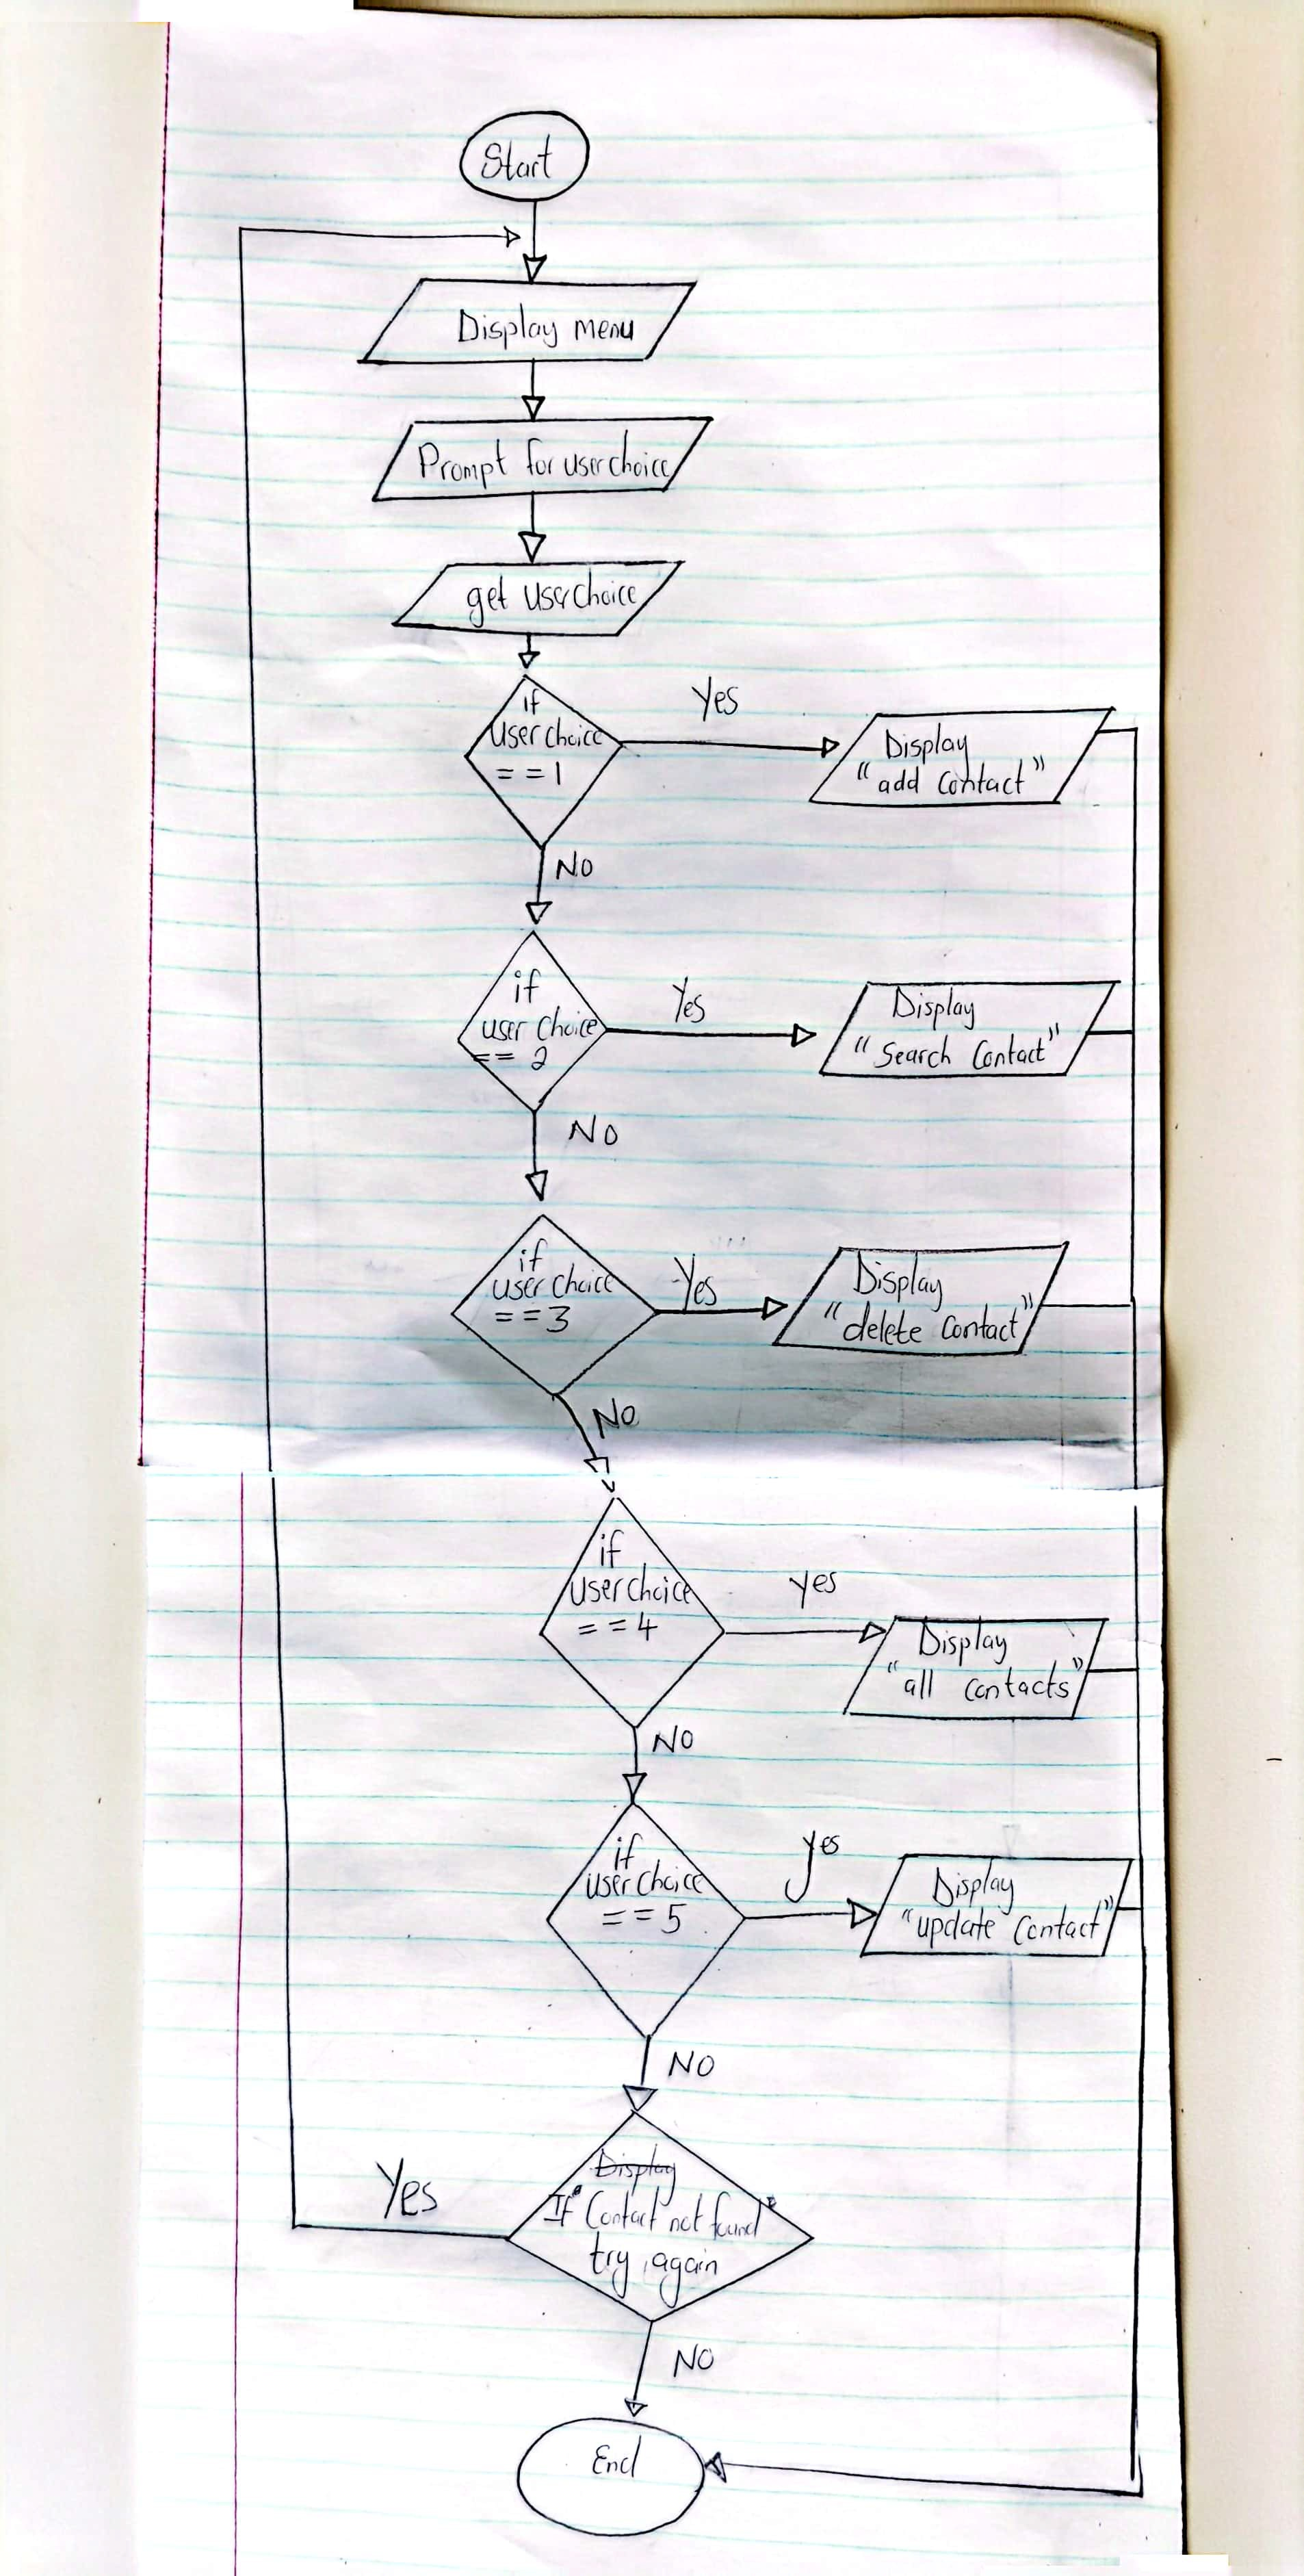 Start
Display menu
Prompt for userchoice
get userchoice
if
user choice
==1
Yes
Display
"add contact"
NO
if
user choice
== 2
Yes
Display
"Search Contact"
NO
if
user choice
==3
Yes
Display
"delete contact"
NO
if
user choice
==4
yes
Display
"all contacts"
NO
if
user choice
==5
yes
Display
"update contact"
NO
Display
If Contact not found
try again
Yes
NO
End